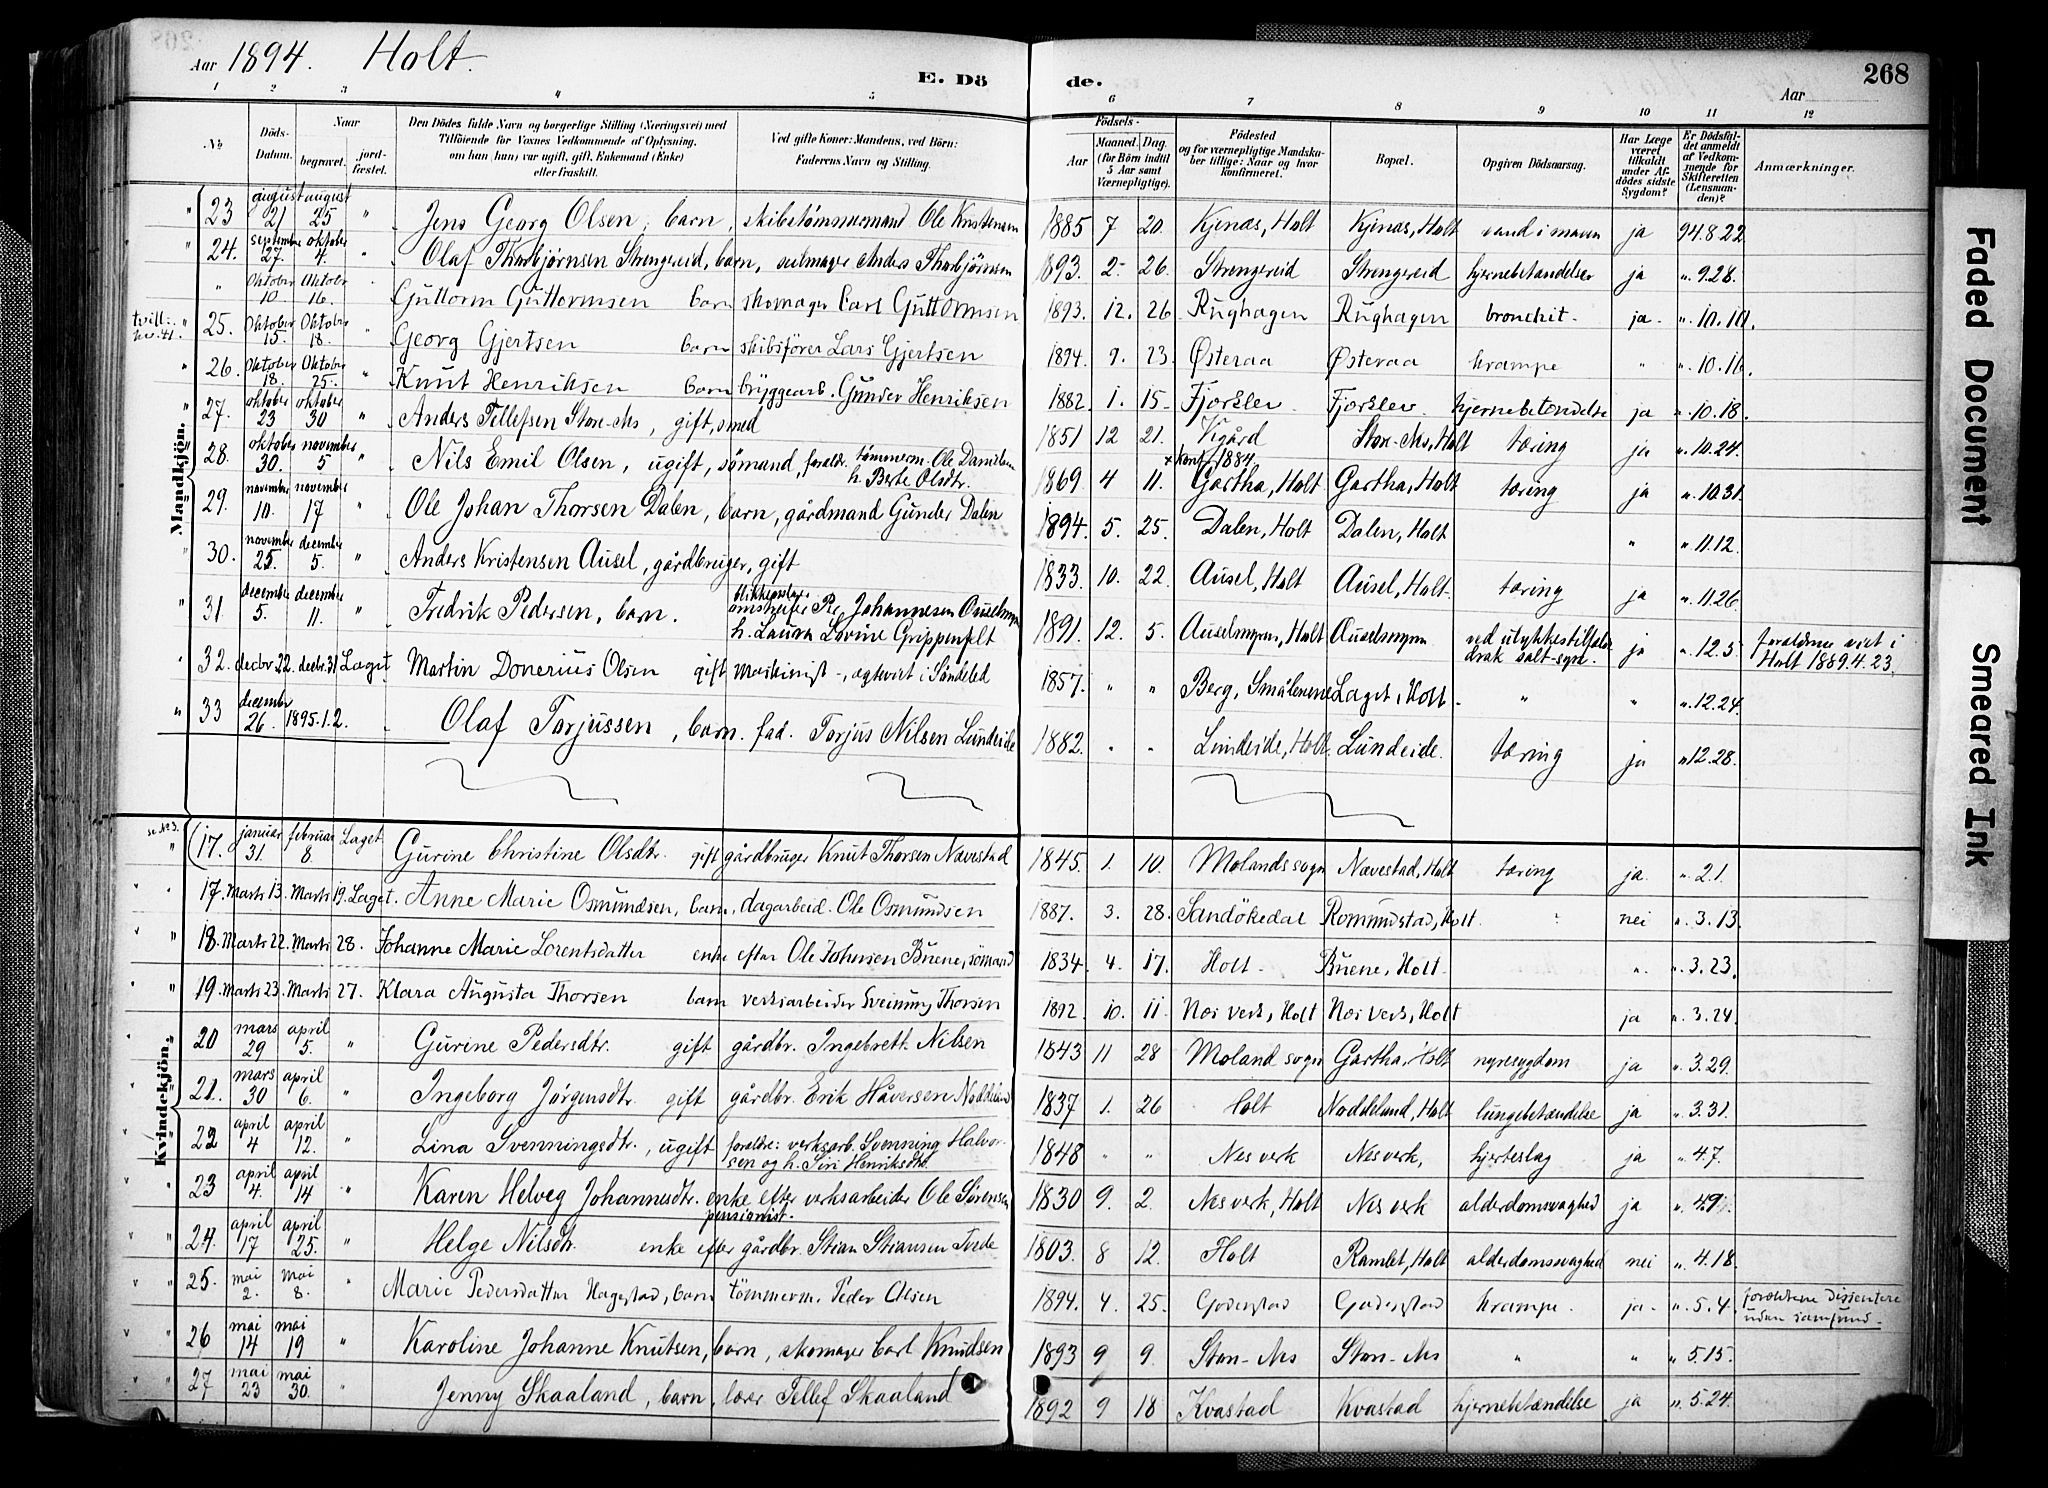 Aar 1894. Holt.
E. Dö de.
268
Aar
1 2 3 4 5 6 7 8 9 10 11 12
No
Döds-Datum.
Naar begravet. jordfæstet.
Den Dödes fulde Navn og borgerlige Stilling (Næringsvei) med Tilföiende for Voxnes Vedkommende af Oplysning, om han (hun) var ugift, gift, Enkemand (Enke) eller fraskilt.
Ved gifte Koner: Mandens, ved Börn: Faderens Navn og Stilling.
Födsels-
Aar
Maaned. Dag. (for Börn indtil 5 Aar samt Værnepligtige).
Födested og for værnepligtige Mandskaber tillige: Naar og hvor konfirmeret.
Bopæl.
Opgiven Dödsaarsag.
Har Læge været tilkaldt under Afdödes sidste Sygdom?
Er Dödsfaldet anmeldt af Vedkommende for Skifteretten (Lensmanden)?
Anmærkninger.
Mandkjön.
" 23 august 21 august 25 " Jens Georg Olsen, barn, skibstømmermand Ole Kristensen 1885 7 20. Kjenas, Holt Kjenas, Holt vand i maven ja 94.8.22
" 24. septembe 27. oktober 4. " Olaf Thorbjørnsen Strengereid, barn, seilmager Anders Thorbjørnsen 1893. 2 26 Strengereid Strengereid hjernebetændelse ja ". 9.28.
" Oktober 10. Oktober 16. Guttorm Guttormsen barn skomager Carl Guttormsen 1893. 12. 26 Rughagen Rughagen bronchit. ja. ". 10.10.
tvill: " 25. Oktober 15. Oktober 18. " Georg Gjertsen barn skibsfører Lars Gjertsen 1894 9. 23. Østeraa Østeraa krampe " ". 10.16.
" 26. Oktober 18. Oktober 25. " Knut Henriksen barn bryggearb. Gunder Henriksen 1882. 1. 15. Fjorslev Fjorslev. hjernebetændelse ja ". 10.18.
" 27. oktober 23 oktober 30 " Anders Tellefsen Ston-Nes, gift, smed 1851 12 21. Vegård Ston-Nes, Holt tæring ja ". 10.24.
28. oktober 30. november 5 " Nils Emil Olsen, ugift, sømand, foreldr. tømmerm. Ole Danielsen h. Berte Olsdtr. 1869 4 11. + konf. 1884 Gartha, Holt Gartha, Holt tæring ja ". 10.31.
29. november 10. november 17 " Ole Johan Thorsen Dalen, barn, gårdmand Gunder Dalen 1894. 5. 25. Dalen, Holt Dalen, Holt " ". 11.12.
30. november 25. december 5. " Anders Kristensen Ausel, gårdbruger, gift 1833. 10. 22 Ausel, Holt Ausel, Holt. tæring ja ". 11.26.
" 31 december 5. december 11. " Fredrik Pedersen, barn. blikkenslager Johannesen Auselmyra h. Laura Lovine Grippenfelt 1891. 12. 5. Auselmyra, Holt Auselmyra ved ulykkestilfælde drak salt-syre. ja ". 12.5 forældrene viet i Holt 1889.4.23.
" 32. decbr 22. decbr. 31 Laget Martin Donerius Olsen gift Maskinist -, ægteviet i Søndeled 1857. " " Berg, Smålenene Laget, Holt " " ". 12.24.
" 33 december 26. 1895.1.2. Olaf Torjussen, barn. fad. Torjus Nilsen Lundeide 1882. " " Lundeide, Holt. Lundeide. tæring ja " 12.28.
Kvindekjön.
se No 3. " (17. januar 31. februar 8. Laget Gurine Christine Olsdtr. gift gårdbruger Knut Thorsen Nævestad 1845. 1. 10. Molands sogn Nævestad, Holt tæring ja. ". 2.1.
" " 17. Marts 13. Marts 19. Laget. Anne Marie Osmundsen, barn, dagarbeid. Ole Osmundsen 1887. 3. 28. Sandøkedal Romundstad, Holt. nei ". 3.13.
" " 18. Marts 22. Marts 28. Johanne Marie Lorentsdatter enke efter Ole Johnsen Buene, sømand 1834. 4. 17. Holt. Buene, Holt. ". ". 3.23.
" " 19. Marts 23. Marts 27. Klara Augusta Thorsen barn verksarbeider Sveinung Thorsen 1892. 10. 11. Nes verk, Holt Nes verk, Holt ja ". 3.24.
" " 20 mars 29 april 5. " Gurine Pedersdtr. gift gårdbr. Ingebrett Nilsen 1843 11 28 Moland sogn Gartha, Holt nyresygdom ja ". 3.29.
" " 21. mars 30 april 6. " Ingeborg Jørgensdtr. gift gårdbr. Erik Håversen Noddeland 1837 1. 26 Holt Noddeland, Holt lungebetændelse ja ". 3.31.
" " 22 april 4 april 12. " Lina Svenningsdtr., ugift foreldre: verksarb. Svenning Halvorsen og h. Siri Henriksdtr. 1848 " " Nes verk Nes verk, hjerteslag ja ". 4.7.
" " 23 april 4. april 14 " Karen Helveg Johannesdtr. enke efter verksarbeider Ole Sørensen pensionist. 1830 9. 2. Nes verk, Holt Nes verk alderdomsvaghed ja ". 4.9.
" " 24. april 17 april 25. " Helge Nilsdtr. enke efter gårdbr. Stian Stiansen Tvede 1803. 8 12. Holt Ramlet, Holt alderdomsvaghed nei ". 4.18.
" " 25. mai 2. Mai 8. " Marie Pedersdatter Hagestad, barn tömmerm. Peder Olsen 1894. 4. 25. Goderstad Goderstad krampe. ja. ". 5.4. forældrene Dissentere uden samfund.
" " 26 mai 14 mai 19 " Karoline Johanne Knutsen, barn, skomager Carl Knudsen 1893 9 9. Ston-Nes Ston-Nes " " ". 5.15.
" " 27 mai 23 mai 30. " Jenny Skaaland, barn, lærer Tellef Skaaland 1892 9 18 Kvastad Kvastad hjernebetændelse ja ". 5.24.
Faded Document
Smeared Ink